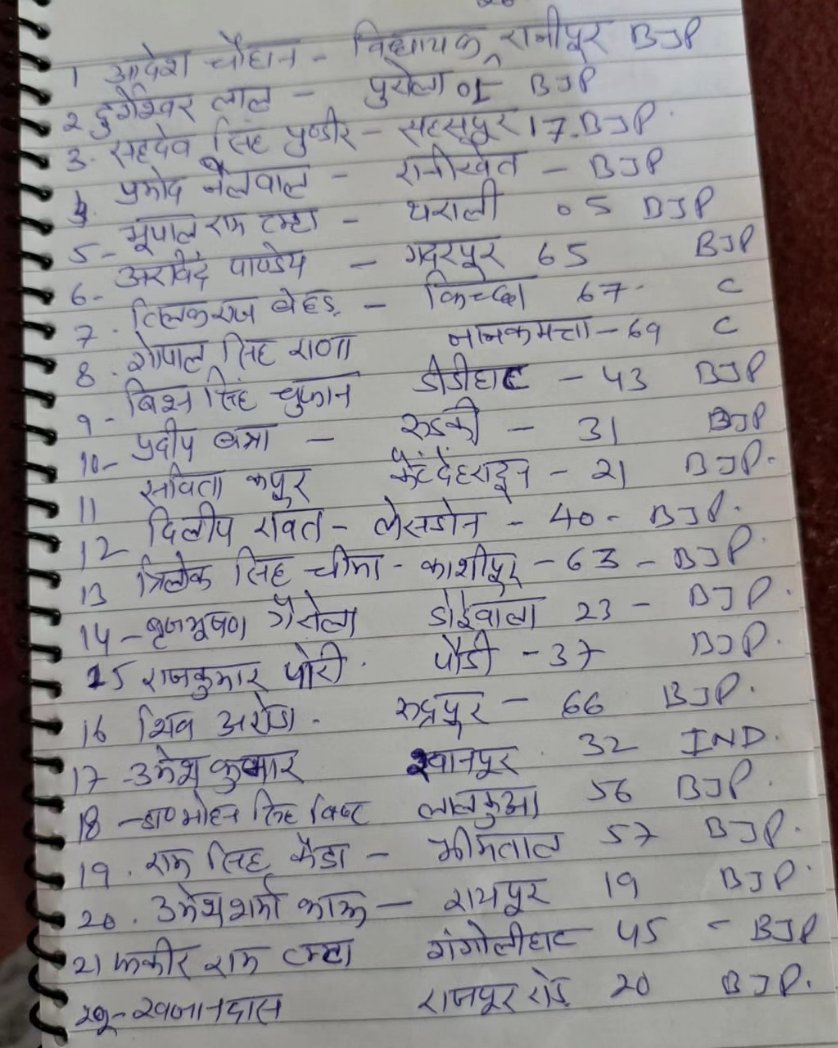 1 आदेश चौहान - विधायक रानीपुर BJP
2 दुर्गेश्वर लाल - पुरोला 01 BJP
3. सहदेव सिंह पुण्डीर - सहसपुर 17. BJP.
4. प्रमोद नैलवाल - रानीखेत - BJP
5- भूपाल राम टम्टा - थराली 05 BJP
6- अरविंद पाण्डेय - गदरपुर 65 BJP
7. तिलकराज बेहड़ - किच्छा 67- C
8. गोपाल सिंह राणा नानकमत्ता - 69 C
9- बिशन सिंह चुफाल डीडीहाट - 43 BJP
10- प्रदीप बत्रा - रुडकी - 31 BJP
11 सविता कपूर कैंट देहरादून - 21 BJP.
12 दिलीप रावत - लेंसडोन - 40- BJP.
13 त्रिलोक सिंह चीमा - काशीपुर - 63 - BJP.
14 - बृजभूषण गैरोला डोईवाला 23 - BJP.
15 राजकुमार पोरी. पौडी - 37 BJP.
16 शिव अरोडा. रुद्रपुर - 66 BJP.
17 - उमेश कुमार खानपुर. 32 IND.
18 - डा० मोहन सिंह विष्ट लालकुआ 56 BJP.
19. राम सिंह कैडा - भीमताल 57 BJP.
20. उमेश शर्मा काऊ - रायपुर 19 BJP.
21 फकीर राम टम्टा गंगोलीहाट 45 - BJP
22- खजानदास राजपुर रोड 20 BJP.